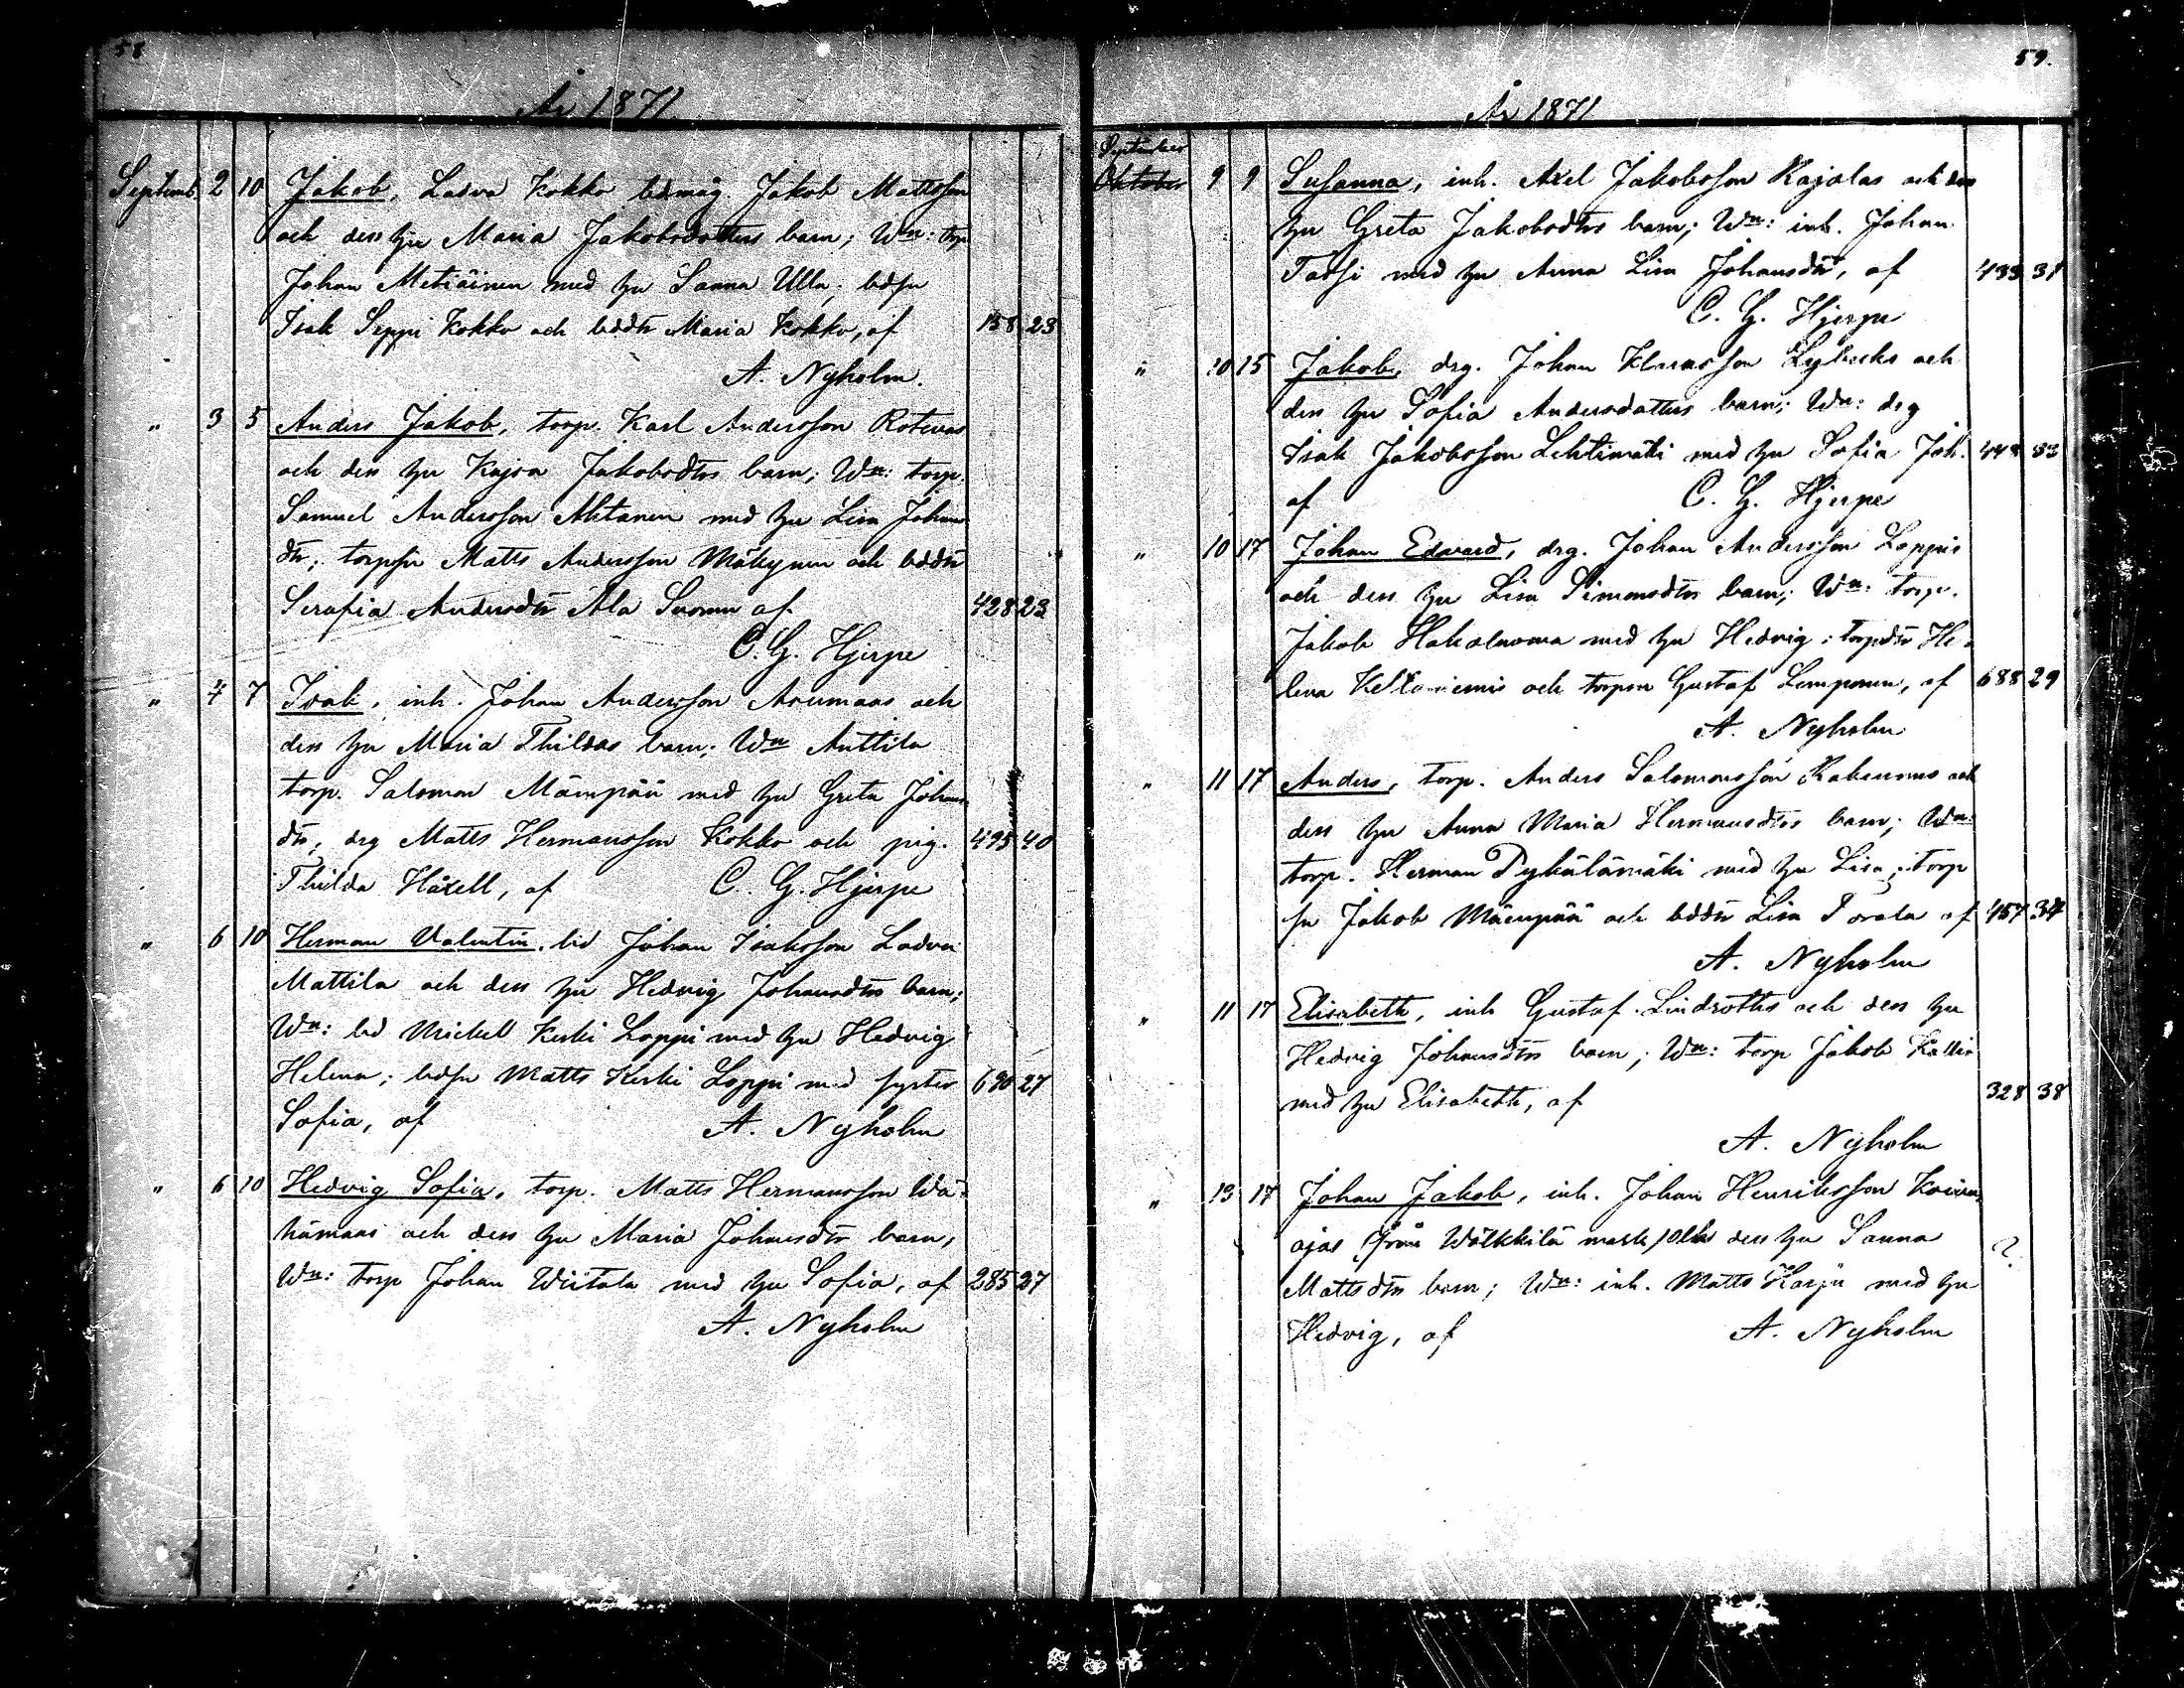 58
År 1871.
Septemb. 2 10 Jakob, Ladva Kokko bdmåg Jakob Mattsson
och dess hu Maria Jakobsdotters barn; Wn: torp
Johan Metiäinen med hu Sanna Ulla; bdsn
Isak Seppi Kokko och bddtr Maria Kokko, af 158 23
A. Nyholm.
" 3 5 Anders Jakob, torp. Karl Andersson Rotevas
och dess hu Kajsa Jakobsdtrs barn; Wn: torp.
Samuel Andersson Ahtanen med hu Lisa Johans
dtr; torpsn Matts Andersson Mäkynen och bddtr
Serafia Andersdtr Ala Suomu af 428 23
C. G. Hjerpe
" 4 7 Isak, inh. Johan Andersson Asumaas och
dess hu Maria Thildas barn; Wn Anttila
torp. Salomon Mäenpää med hu Greta Johans
dtr, drg Matts Hermansson Kokko och pig. 495 40
Thilda Häxell, af C. G. Hjerpe
" 6 10 Herman Valentin, bd Johan Isaksson Ladva
Mattila och dess hu Hedvig Johansdtrs barn;
Wn: bd Mickel Keski Loppi med hu Hedvig
Helena; bdsn Matts Keski Loppi med syster 690 27
Sofia, af A. Nyholm
" 6 10 Hedvig Sofia, torp. Matts Hermansson Wä-
hämaas och dess hu Maria Johansdtrs barn;
Wn: torp Johan Wiitala med hu Sofia, af 285 27
A. Nyholm
59.
År 1871
September
Oktober 9 9 Susanna, inh. Axel Jakobsson Kajalas och dess
hu Greta Jakobsdtrs barn; Wn: inh. Johan
Tassi med hu Anna Lisa Johansdtr, af 433 31
C. G. Hjerpe
" 10 15 Jakob, drg. Johan Klarasson Lybecks och
dess hu Sofia Andersdotters barn; Wn: drg
Isak Jakobsson Lehtimäki med hu Sofia Joh. 448 83
af C. G. Hjerpe
" 10 17 Johan Edvard, drg. Johan Andersson Loppis
och dess hu Lisa Simonsdtrs barn; Wn: torp.
Jakob Hakoluoma med hu Hedvig; torpdtr He-
lena Keltaniemis och torpsn Gustaf Lamponen, af 688 29
A. Nyholm
" 11 17 Anders, torp. Anders Salomonsson Kakuomos och
dess hu Anna Maria Hermansdtrs barn; Wn:
torp. Herman Pyhälämäki med hu Lisa; torp
sn Jakob Mäenpää och bddtr Lisa Torala af 457 34
A. Nyholm
" 11 17 Elisabeth, inh Gustaf Lindroths och dess hu
Hedvig Johansdtrs barn; Wn: torp Jakob Kallio
med hu Elisabeth, af 328 38
A. Nyholm
" 13 17 Johan Jakob, inh. Johan Henriksson Koivu
ojas (från Wälkkilä mark) och dess hu Sanna ?
Mattsdtrs barn; Wn: inh. Matts Harju med hu
Hedvig, af A. Nyholm